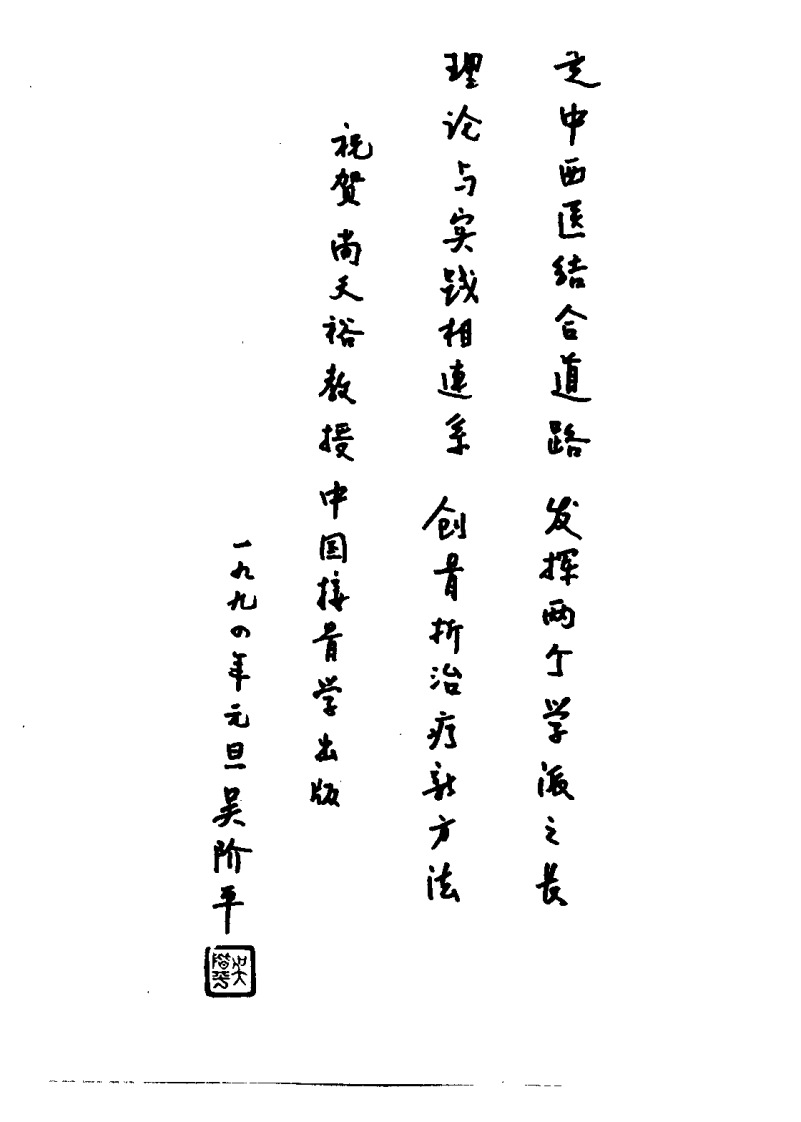 走中西医结合道路 发挥两个学派之长
理论与实践相連系 创骨折治疗新方法
祝贺尚天裕教授中国接骨学出版
一九九〇年元旦 吴阶平
吴阶平